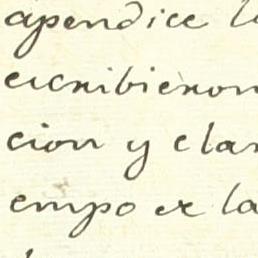 apendice l
escribieron
cion y cla
empo es la